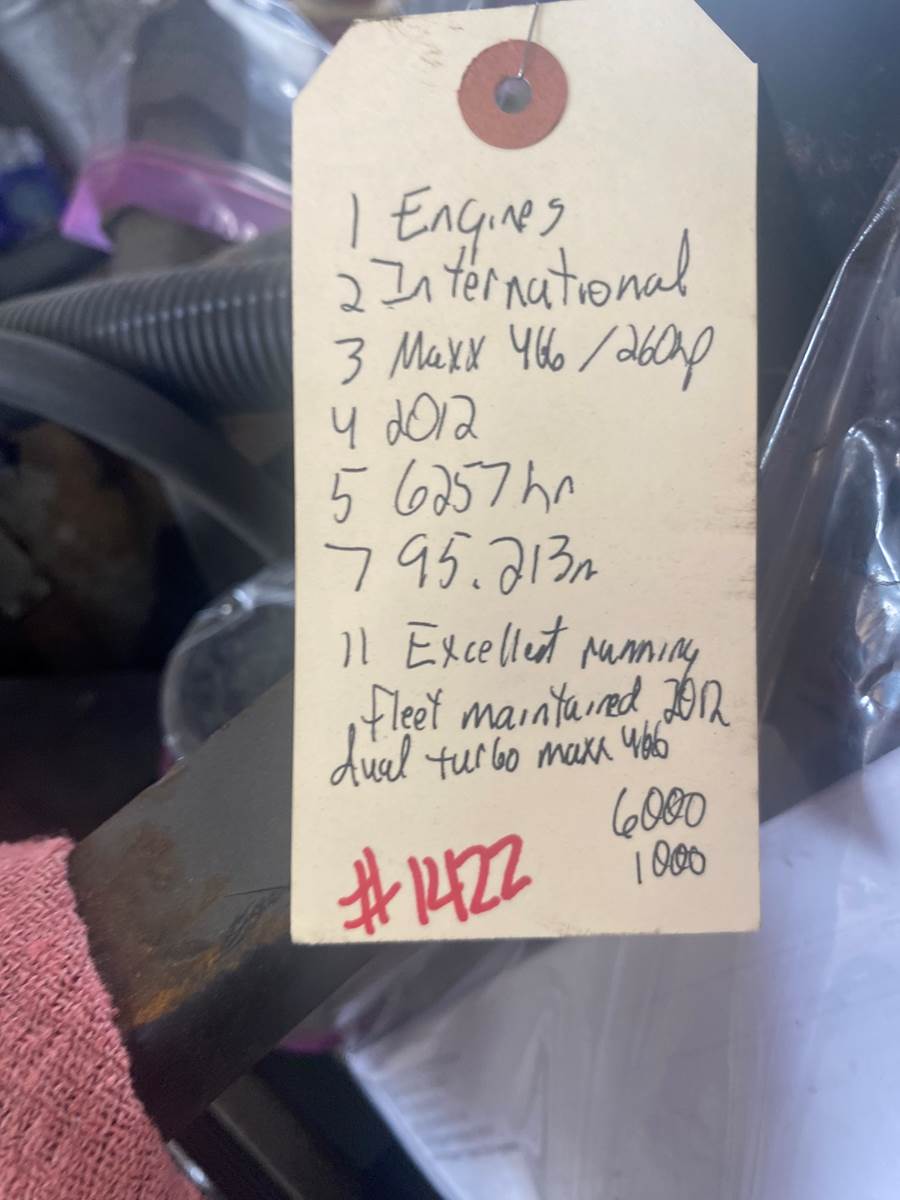 1 Engines
2 International
3 Maxx 466 / 260hp
4 2012
5 6257 hr
7 95.213m
11 Excellent running
fleet maintained 2012
dual turbo maxx 466
6000
1000
#1422